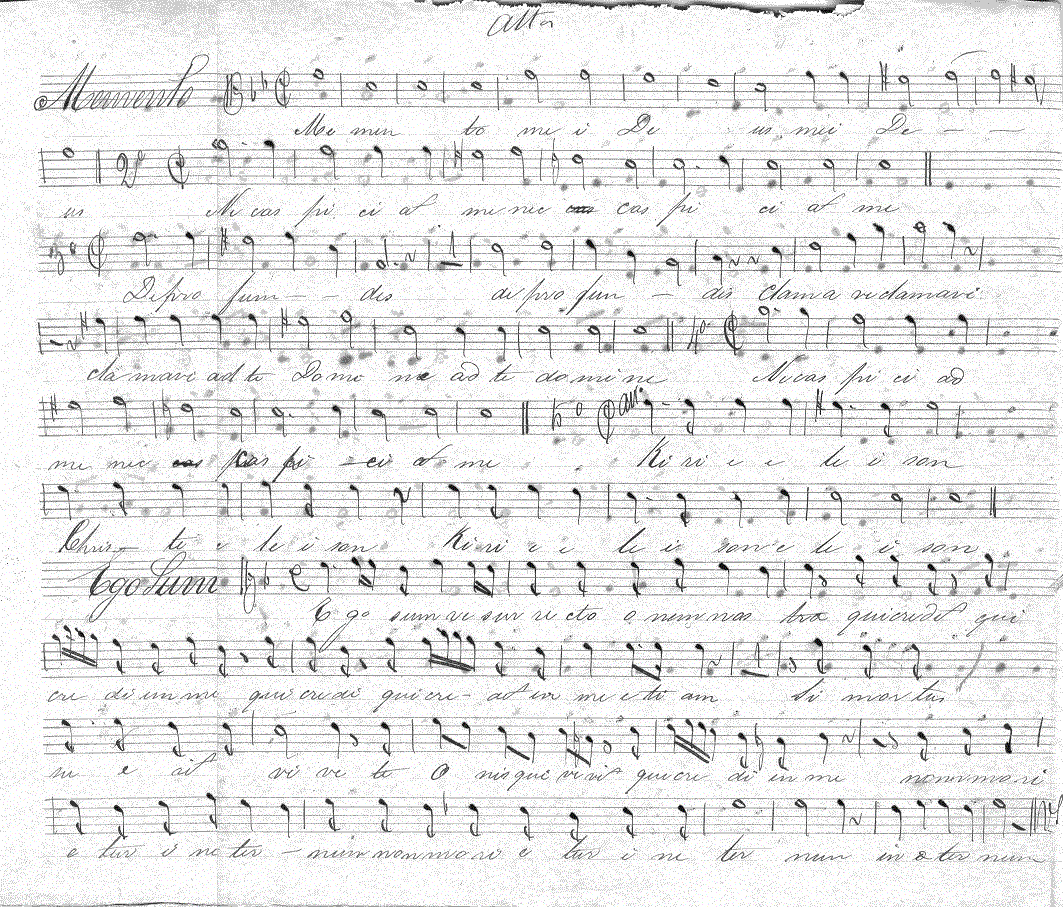 Alto
Memento
Me men to me i De us mei De - -
us 2º Ne cas pi ci at me nec cas pi ci at me
3º De pro fun - - dis de pro fun - dis clama vi clamavi
cla mavi ad te Domi ne ad te do mi ne 4º Ne cas pi ci ad
me nec cas pi - ci at me 5º Ki ri e e le i son
Chris - te e le i son Ki ri e e le i son e le i son
Ego Sum
E go sum re sur re cto o nem nos tra qui credit qui
cre di un me qui cre di qui cre - at in me e ti am si mor tus
su e rit vi ve te O nis qui vivit qui cre di in me non mo ri
e tur i ne ter - num non mo ri e tur i ne ter num in e ter num